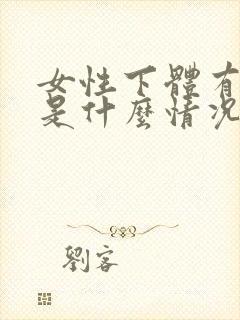 女性下體有
是什麼情況
劉客